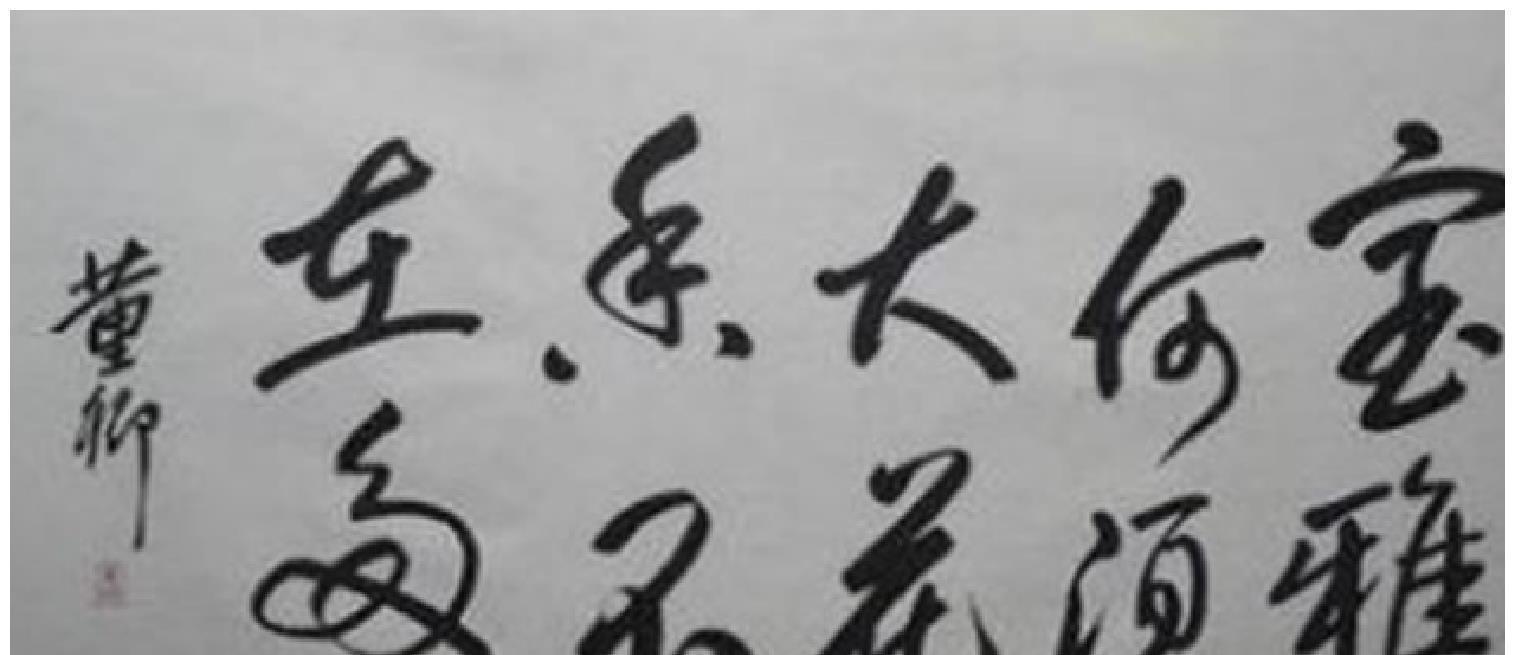 室雅
何须
大
花
香不
在多
董卿